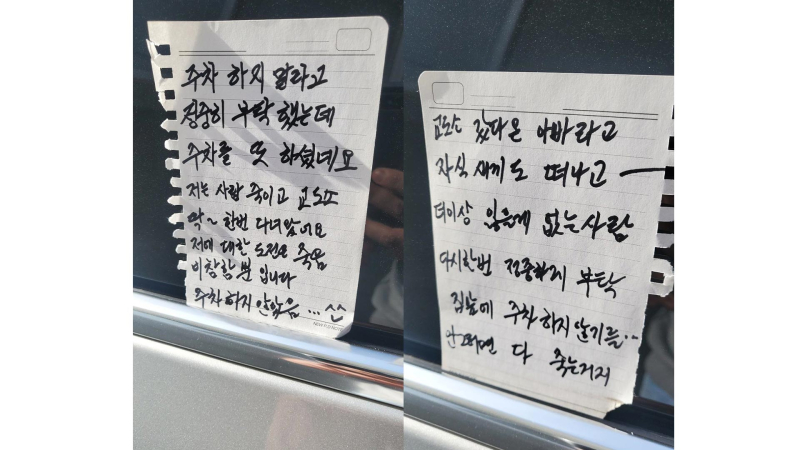 주차 하지 말라고
정중히 부탁 했는데
주차를 또 하셨네요
저는 사람 죽이고 교도소
딱~ 한번 다녀왔어요
저에 대한 도전은 죽음
비참함뿐 입니다
주차하지 않았음... ^^
교도소 갔다온 아빠라고
자식 새끼도 떠나고
더이상 잃을게 없는사람
다시한번 정중하게 부탁
집앞에 주차하지않기를..
안그러면 다 죽는거지